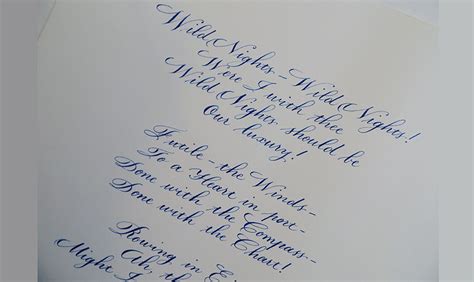 Wild Nights – Wild Nights!
Were I with thee
Wild Nights should be
Our luxury!
Futile – the Winds –
To a Heart in port –
Done with the Compass –
Done with the Chart!
Rowing in E
Ah, th
Might I